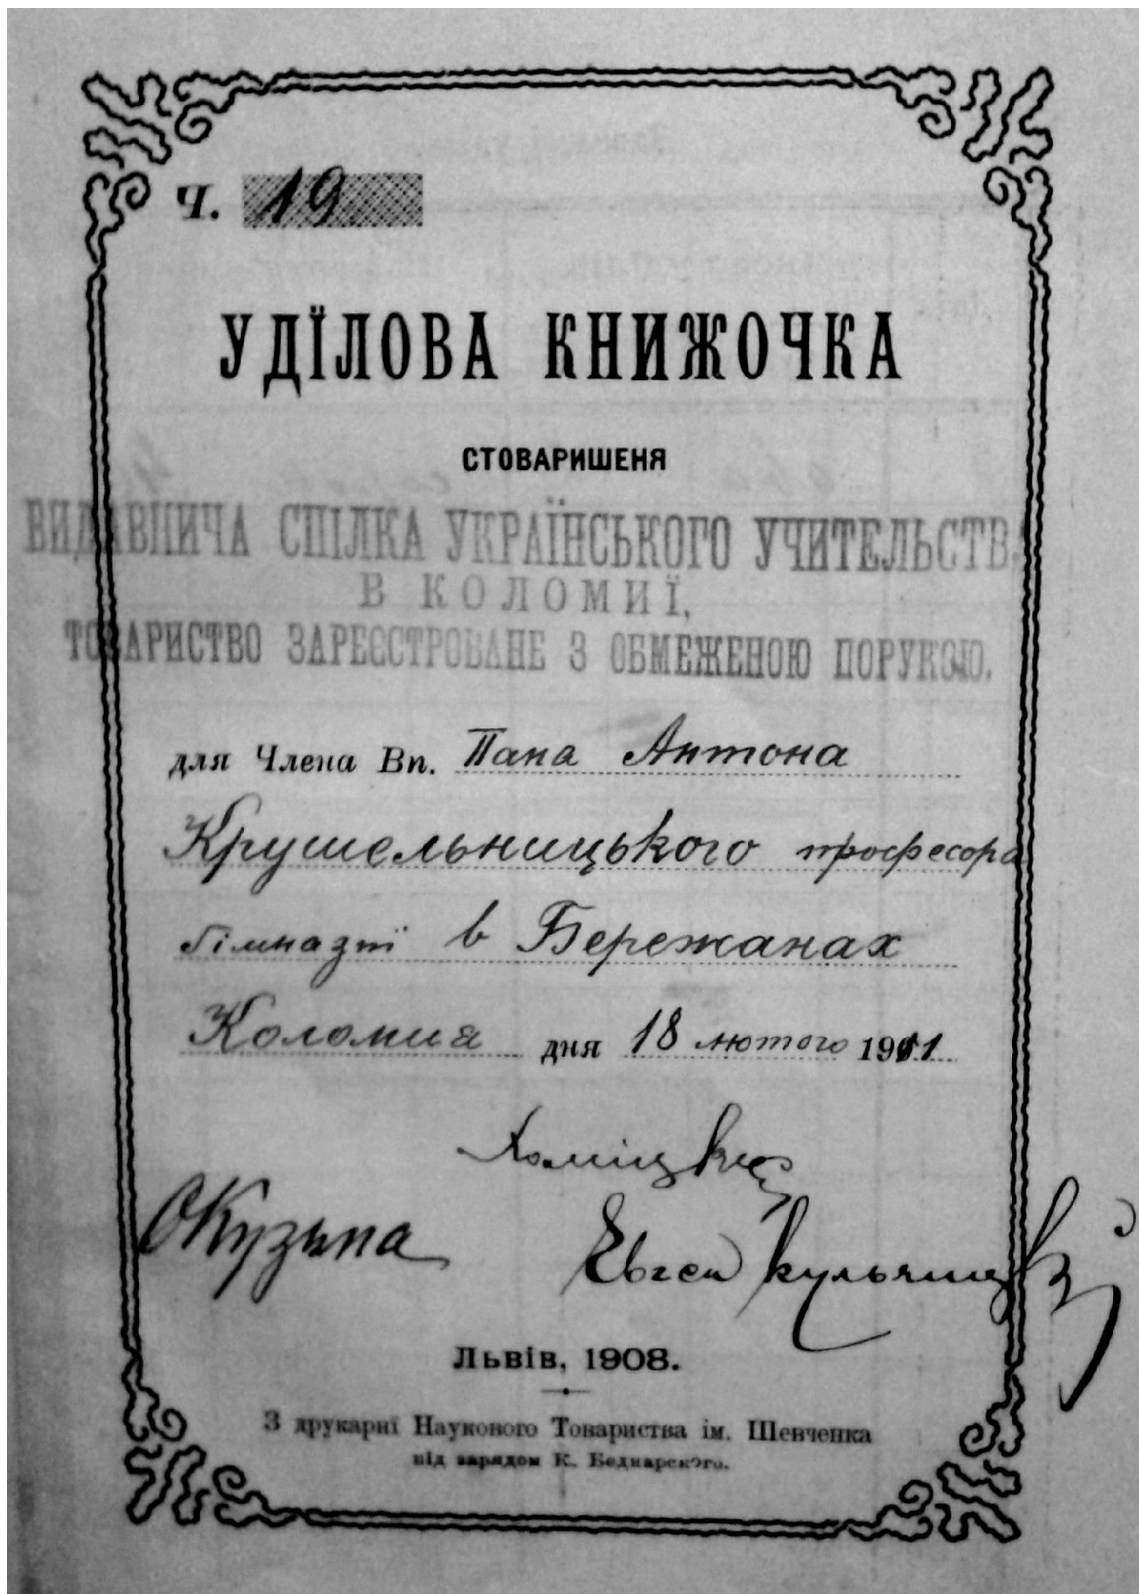 Ч. 19
УДЇЛОВА КНИЖОЧКА
СТОВАРИШЕНЯ
ВИДАВНИЧА СПІЛКА УКРАЇНСЬКОГО УЧИТЕЛЬСТВА
В КОЛОМИЇ,
ТОВАРИСТВО ЗАРЕЄСТРОВАНЕ З ОБМЕЖЕНОЮ ПОРУКОЮ.
для Члена Вп. Пана Антона
Крушельницького професора
гімназиї в Бережанах
Коломия дня 18 лютого 1911
ОКузьма
Евген
Львів, 1908.
З друкарнї Наукового Товариства ім. Шевченка
під зарядом К. Беднарского.